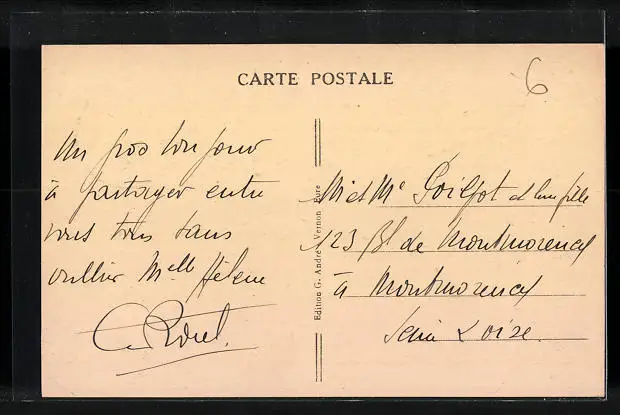 CARTE POSTALE
6
Un gros bonjour
à partager entre
vous tous sans
oublier Melle Hélène
Edition G. André, Vernon Eure
M et Me et leur fille
123 Bd de Montmorency
à Montmorency
Seine Oise.